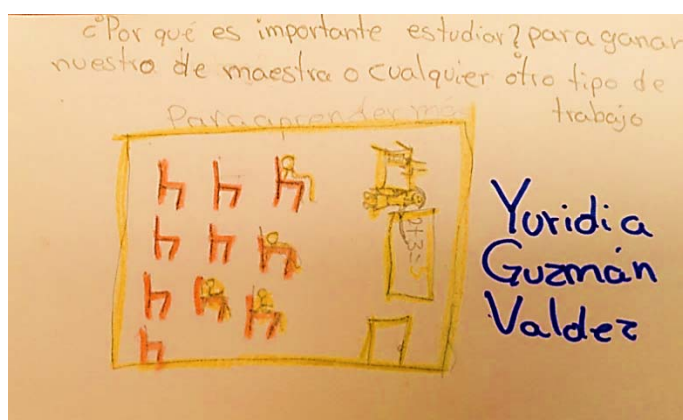 ¿Por qué es importante estudiar? para ganar
nuestro de maestra o cualquier otro tipo de
trabajo
Para aprender más
2+3=5
Yuridia
Guzmán
Valdez